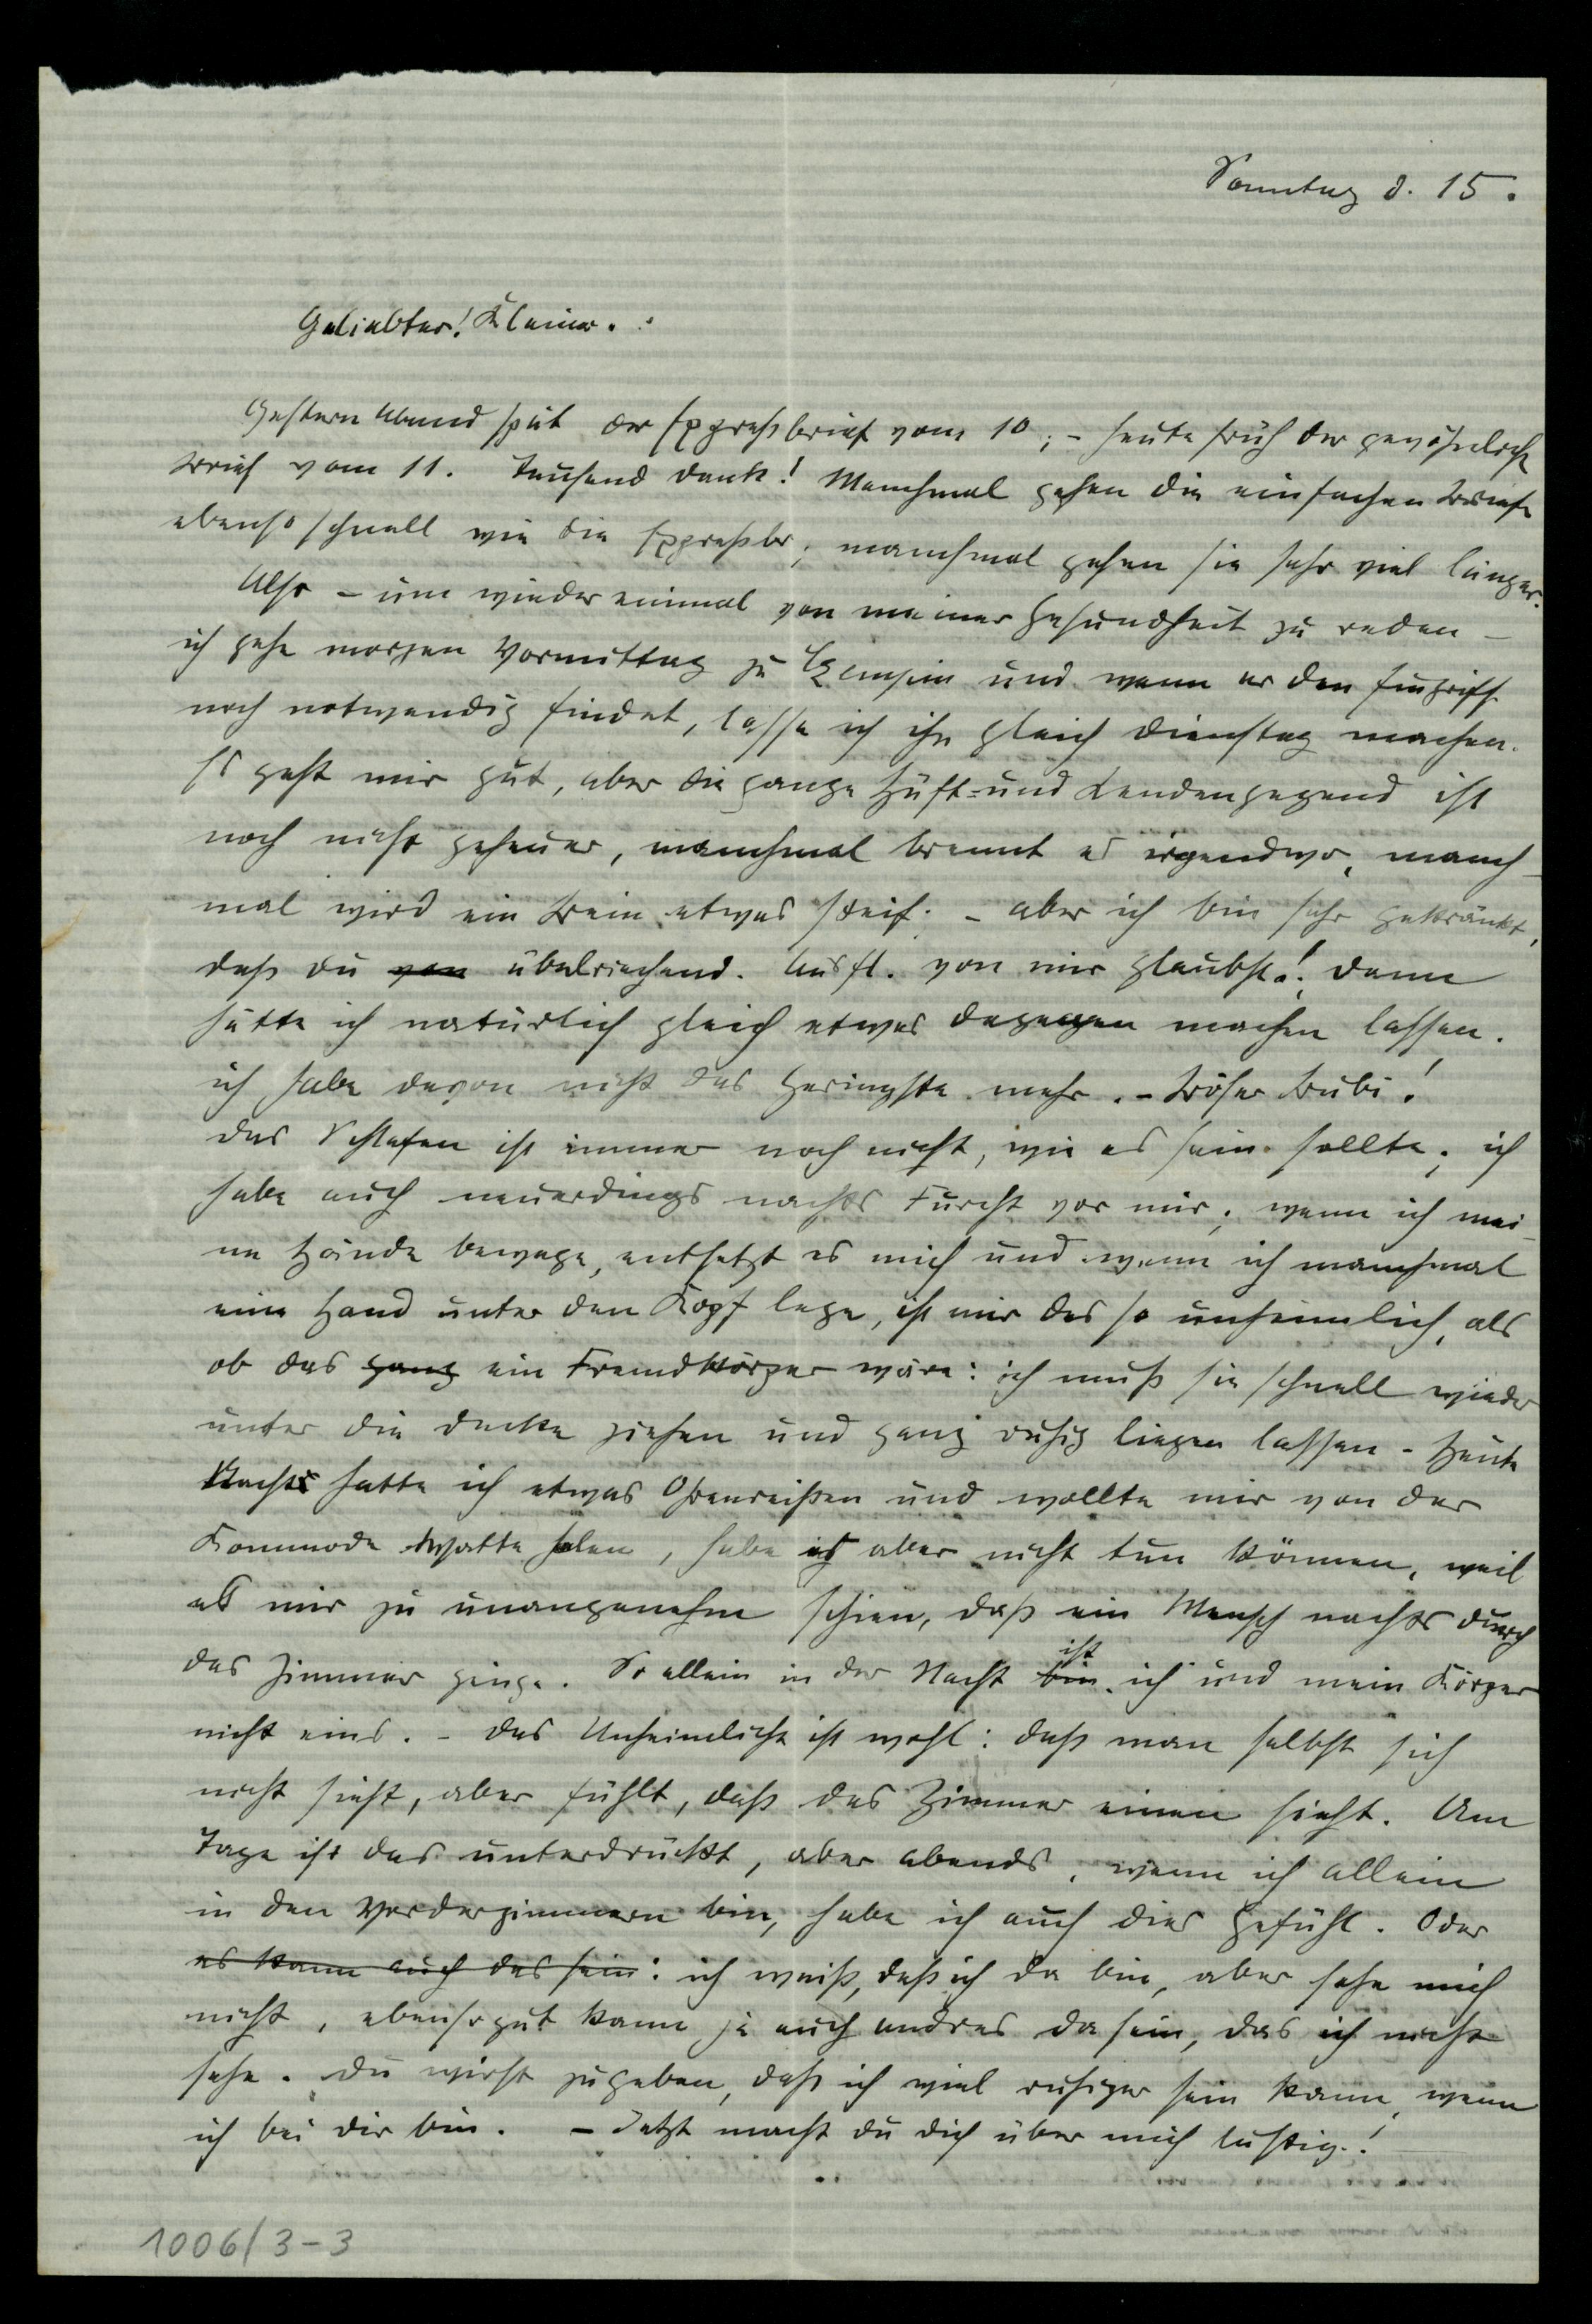 Sonntag d. 15.
Geliebter! Kleiner.
Gestern Abend spät der Expressbrief vom 10; – heute früh der gewöhnliche
Brief vom 11. Tausend Dank! Manchmal gehen die einfachen Briefe
ebenso schnell wie die Expressbr; manchmal gehen sie sehr viel länger.
Also – um wieder einmal von meiner Gesundheit zu reden –
ich gehe morgen Vormittag zu und wenn er den Eingriff
noch notwendig findet, lasse ich ihn gleich Dienstag machen.
Es geht mir gut, aber die ganze Hüft- und Lendengegend ist
noch nicht geheuer, manchmal brennt es irgendwo, manch-
mal wird ein Bein etwas steif. – aber ich bin sehr gekränkt,
daß du von übelriechend. Ausfl. von mir glaubst! dann
hätte ich natürlich gleich etwas dagegen machen lassen.
ich habe davon nicht das Geringste mehr. – Böser Bubi!
Das Schlafen ist immer noch nicht, wie es sein sollte; ich
habe auch neuerdings nachts Furcht vor mir; wenn ich mei-
ne Hände bewege, entsetzt es mich und wenn ich manchmal
eine Hand unter den Kopf lege, ist mir das so unheimlich, als
ob das ganz ein Fremdkörper wäre: ich muß sie schnell wieder
unter die Decke ziehen und ganz ruhig liegen lassen – Heute
Nacht hatte ich etwas Ohrenreißen und wollte mir von der
Kommode Watte holen, habe es aber nicht tun können, weil
es mir zu unangenehm schien, daß ein Mensch nachts durch
das Zimmer ginge. So allein in der Nacht bin ist ich und mein Körper
nicht eins. – Das Unheimliche ist wohl: daß man selbst sich
nicht sieht, aber fühlt, daß das Zimmer einen sieht. Am
Tage ist das unterdrückt, aber abends, wenn ich allein
in den Vorderzimmern bin, habe ich auch dies Gefühl. Oder
es kann auch das sein: ich weiß, daß ich da bin, aber sehe mich
nicht, ebensogut kann ja auch andres da sein, das ich nicht
sehe. Du wirst zugeben, daß ich viel ruhiger sein kann, wenn
ich bei dir bin. – Jetzt machst du dich über mich lustig!
1006/3-3